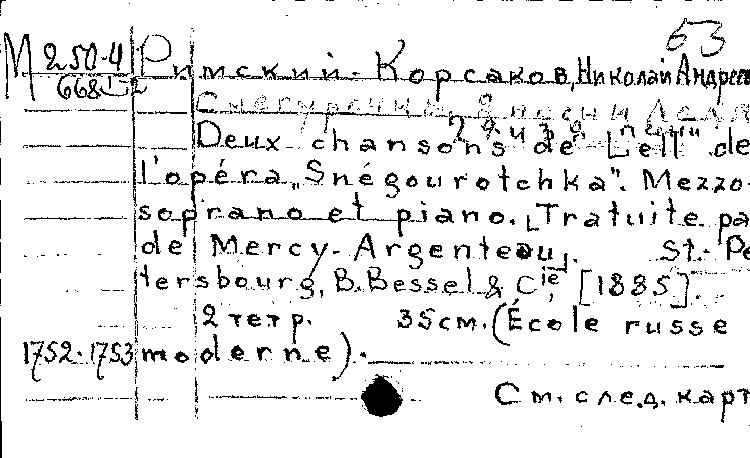 63
М 250-4 Римский-Корсаков, Николай Андрее
668
Снегурочка. песни Леля
2я и 3я песни
Deux chansons de "Lell" de
l'opéra „Snégourotchka". Mezzo-
soprano et piano. Tratuite pa
de Mercy-Argenteau. St.-Pe
tersbourg, B. Bessel & Cie, [1885].
2 тетр. 35см. (École russe
1752-1753 moderne).
См. след. карт